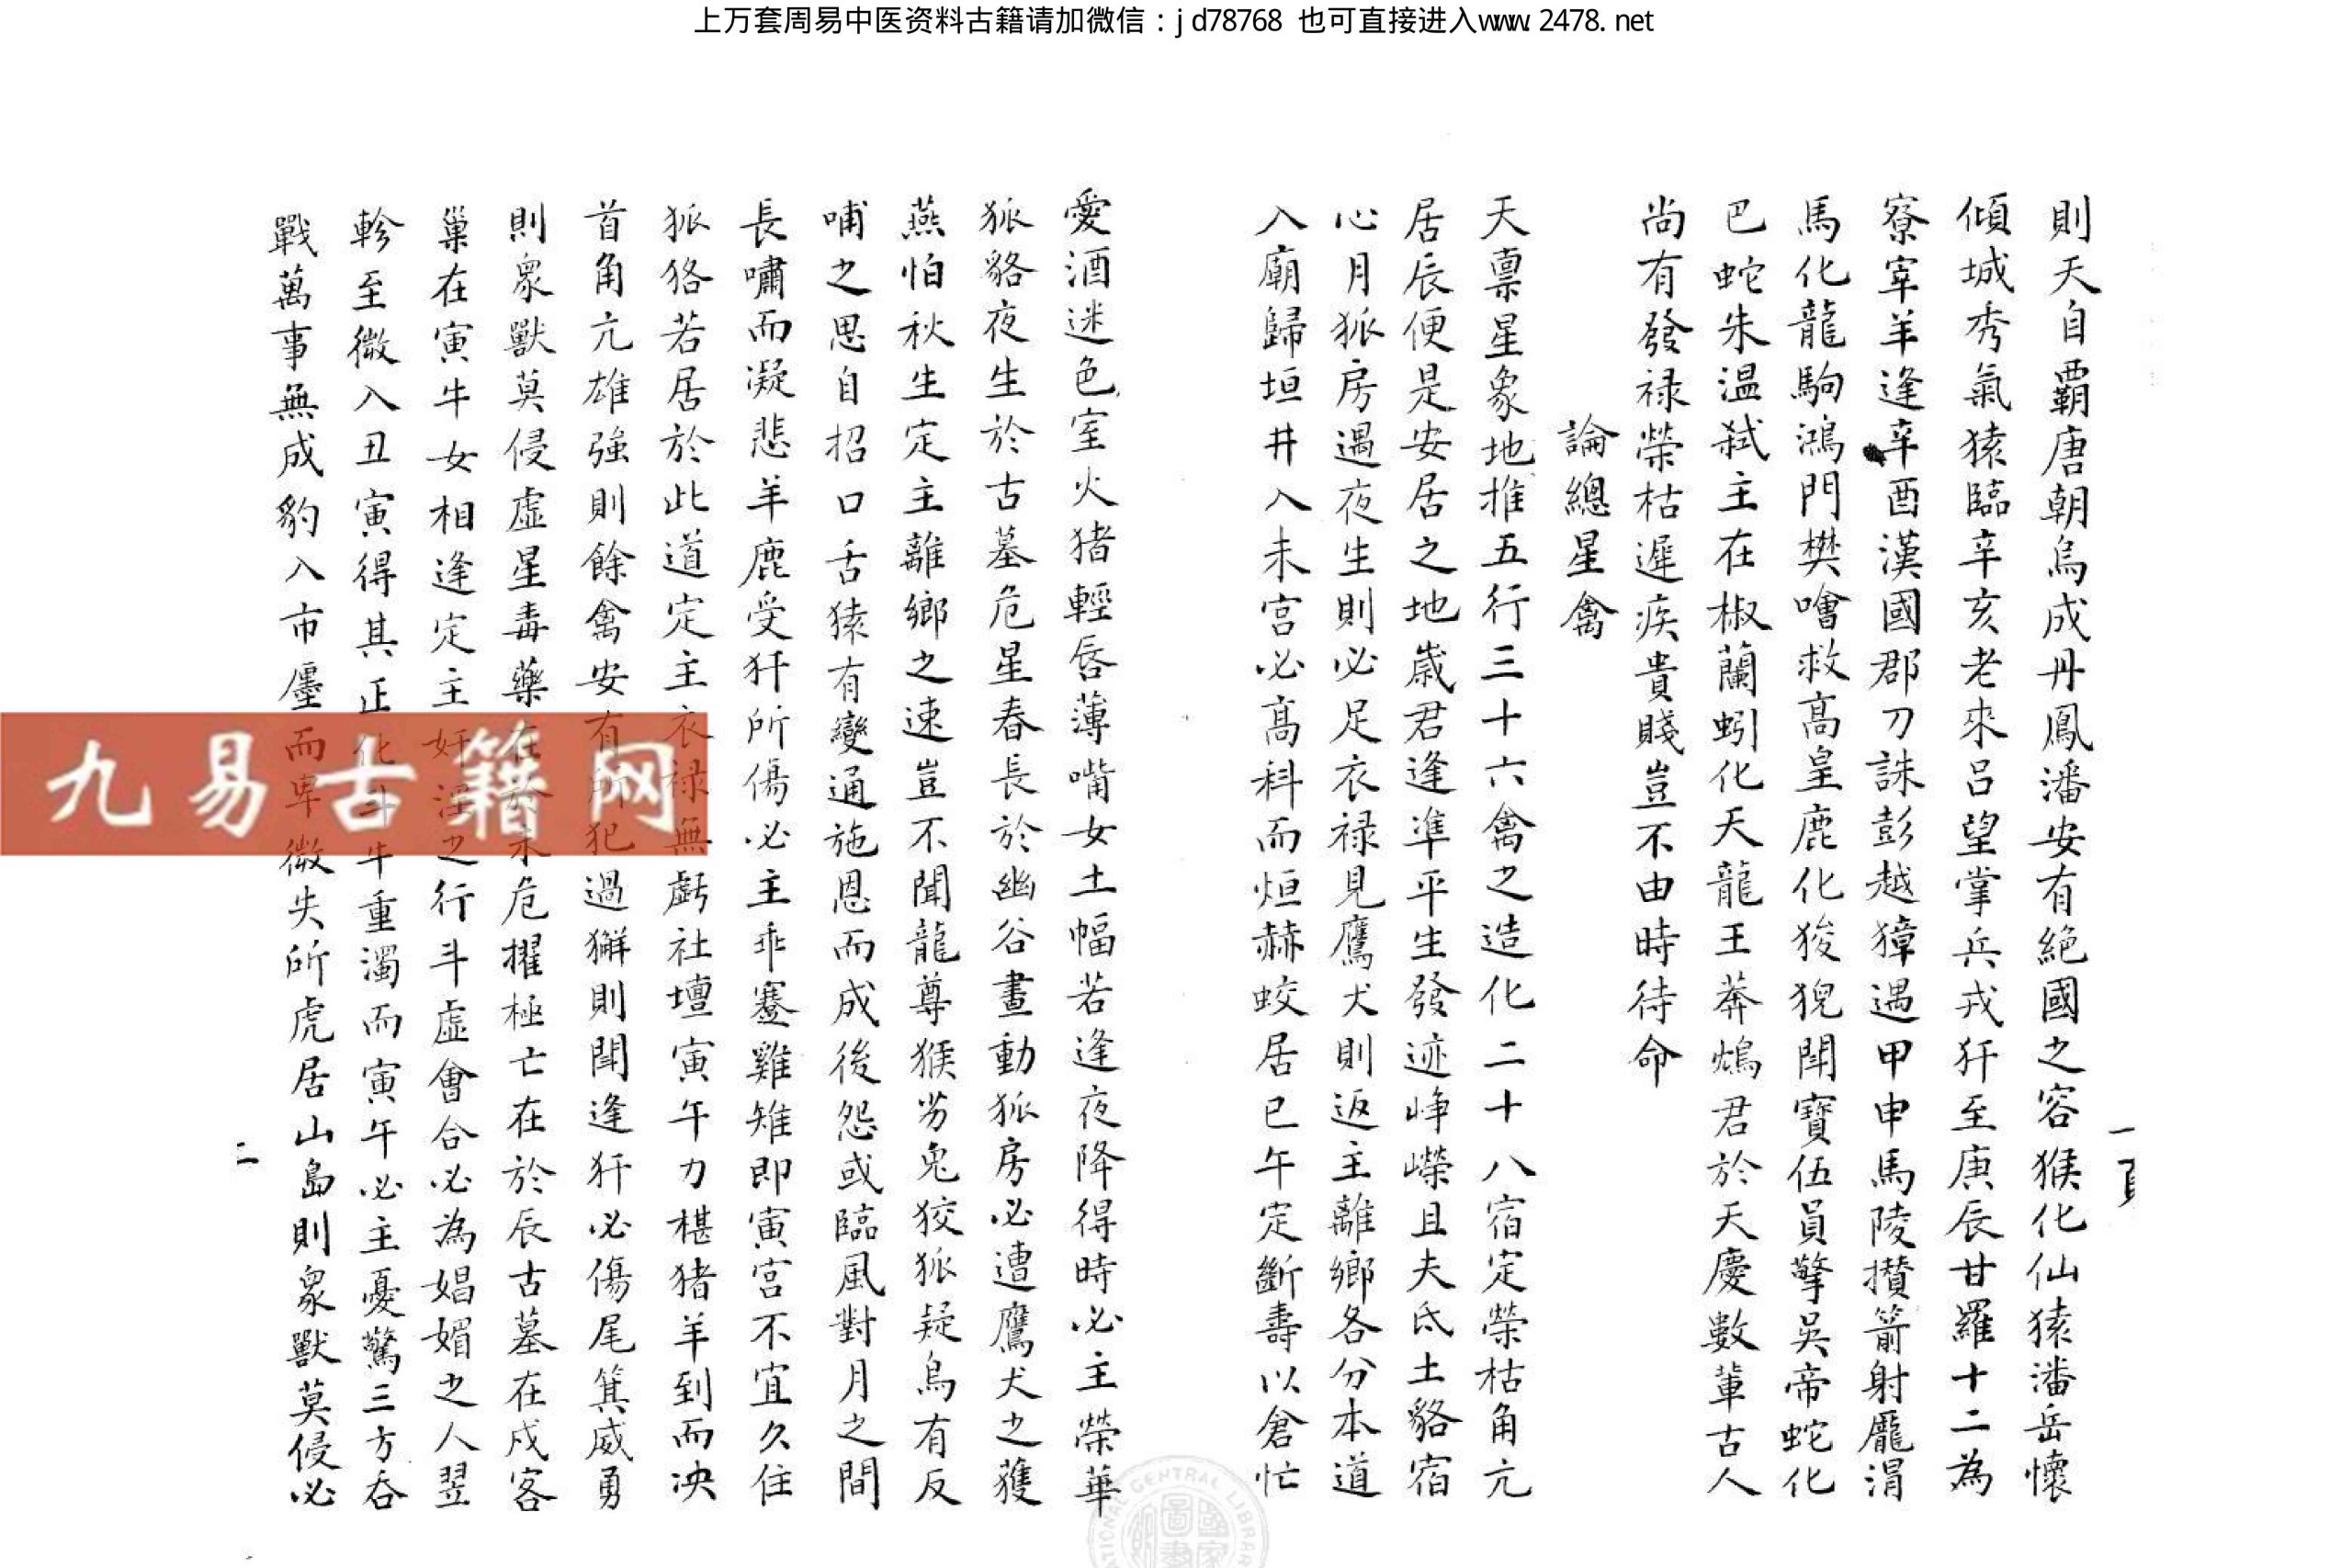 上万套周易中医资料古籍请加微信：jd78768 也可直接进入www.2478.net
一頁
則天自霸唐朝烏成丹鳳潘安有絕國之容猴化仙猿潘岳懷
傾城秀氣猿臨辛亥老來呂望掌兵戎犴至庚辰甘羅十二為
寮宰羊逢辛酉漢國郡刀誅彭越獐遇甲申馬陵攢箭射龐涓
馬化龍駒鴻門樊噲救高皇鹿化狻猊閗寶伍員擎吳帝蛇化
巴蛇朱溫弒主在椒蘭蚓化天龍王莽鴆君於天慶數輩古人
尚有發禄榮枯遲疾貴賤豈不由時待命
論總星禽
天禀星象地推五行三十六禽之造化二十八宿定榮枯角亢
居辰便是安居之地歲君逢準平生發迹崢嶸且夫氐土貉宿
心月狐房遇夜生則必足衣禄見鷹犬則返主離鄉各分本道
入廟歸垣井入未宮必高科而烜赫蛟居巳午定斷壽以倉忙
愛酒迷色室火猪輕唇薄嘴女土蝠若逢夜降得時必主榮華
狐貉夜生於古墓危星春長於幽谷晝動狐房必遭鷹犬之獲
燕怕秋生定主離鄉之速豈不聞龍尊猴劣兔狡狐疑烏有反
哺之思自招口舌猿有變通施恩而成後怨或臨風對月之間
長嘯而凝悲羊鹿受犴所傷必主乖蹇雞雉即寅宮不宜久住
狐狢若居於此道定主衣禄無虧社壇寅午力椹猪羊到而决
首角亢雄強則餘禽安有所犯過獬則閗逢犴必傷尾箕威勇
則衆獸莫侵虛星毒藥在於未危擢極亡在於辰古墓在戍客
巢在寅牛女相逢定主奸淫之行斗虛會合必為娼媚之人翌
軫至微入丑寅得其正化斗牛重濁而寅午必主憂驚三方吞
戰萬事無成豹入市廛而卑微失所虎居山島則衆獸莫侵必
二
九易古籍网
NATIONAL CENTRAL LIBRARY